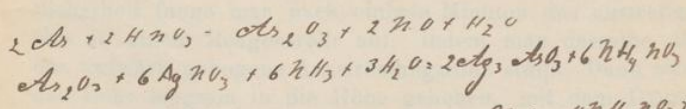 2 As + 2 HNO3 = As2O3 + 2 NO + H2O
As2O3 + 6 AgNO3 + 6 NH3 + 3 H2O = 2 Ag3AsO3 + 6 NH4NO3